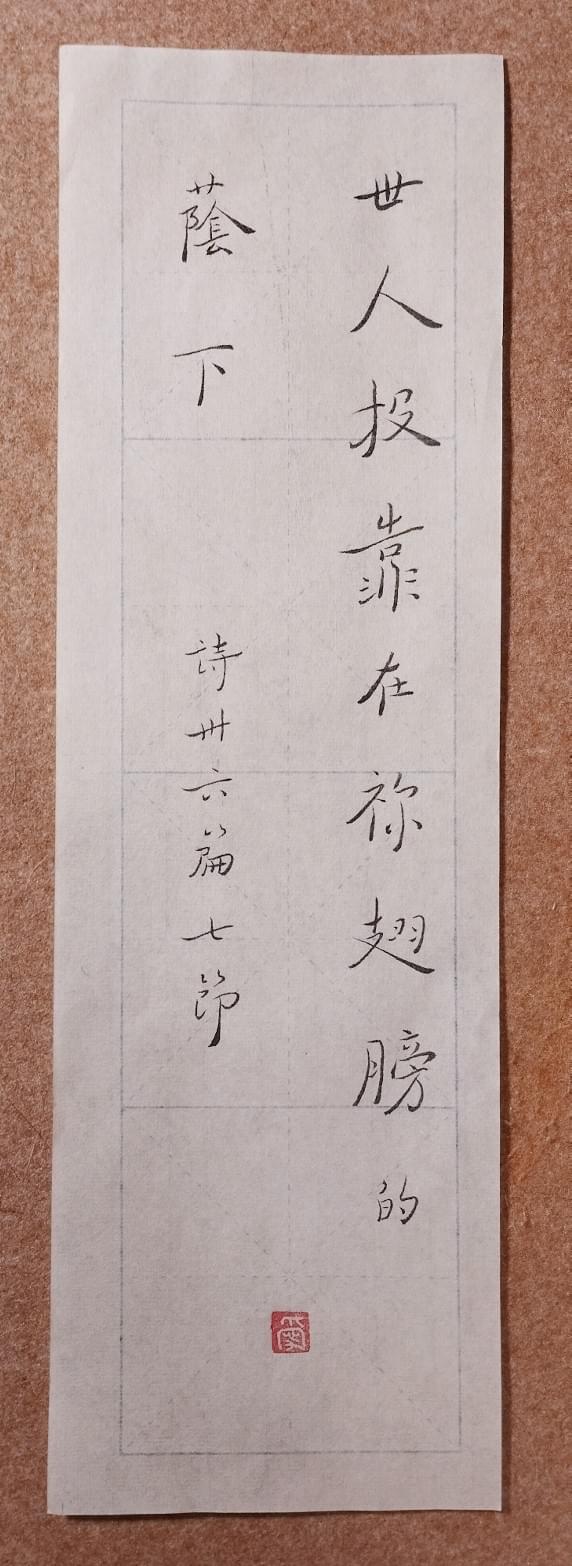 世人投靠在祢翅膀的
蔭下
詩卅六篇七節